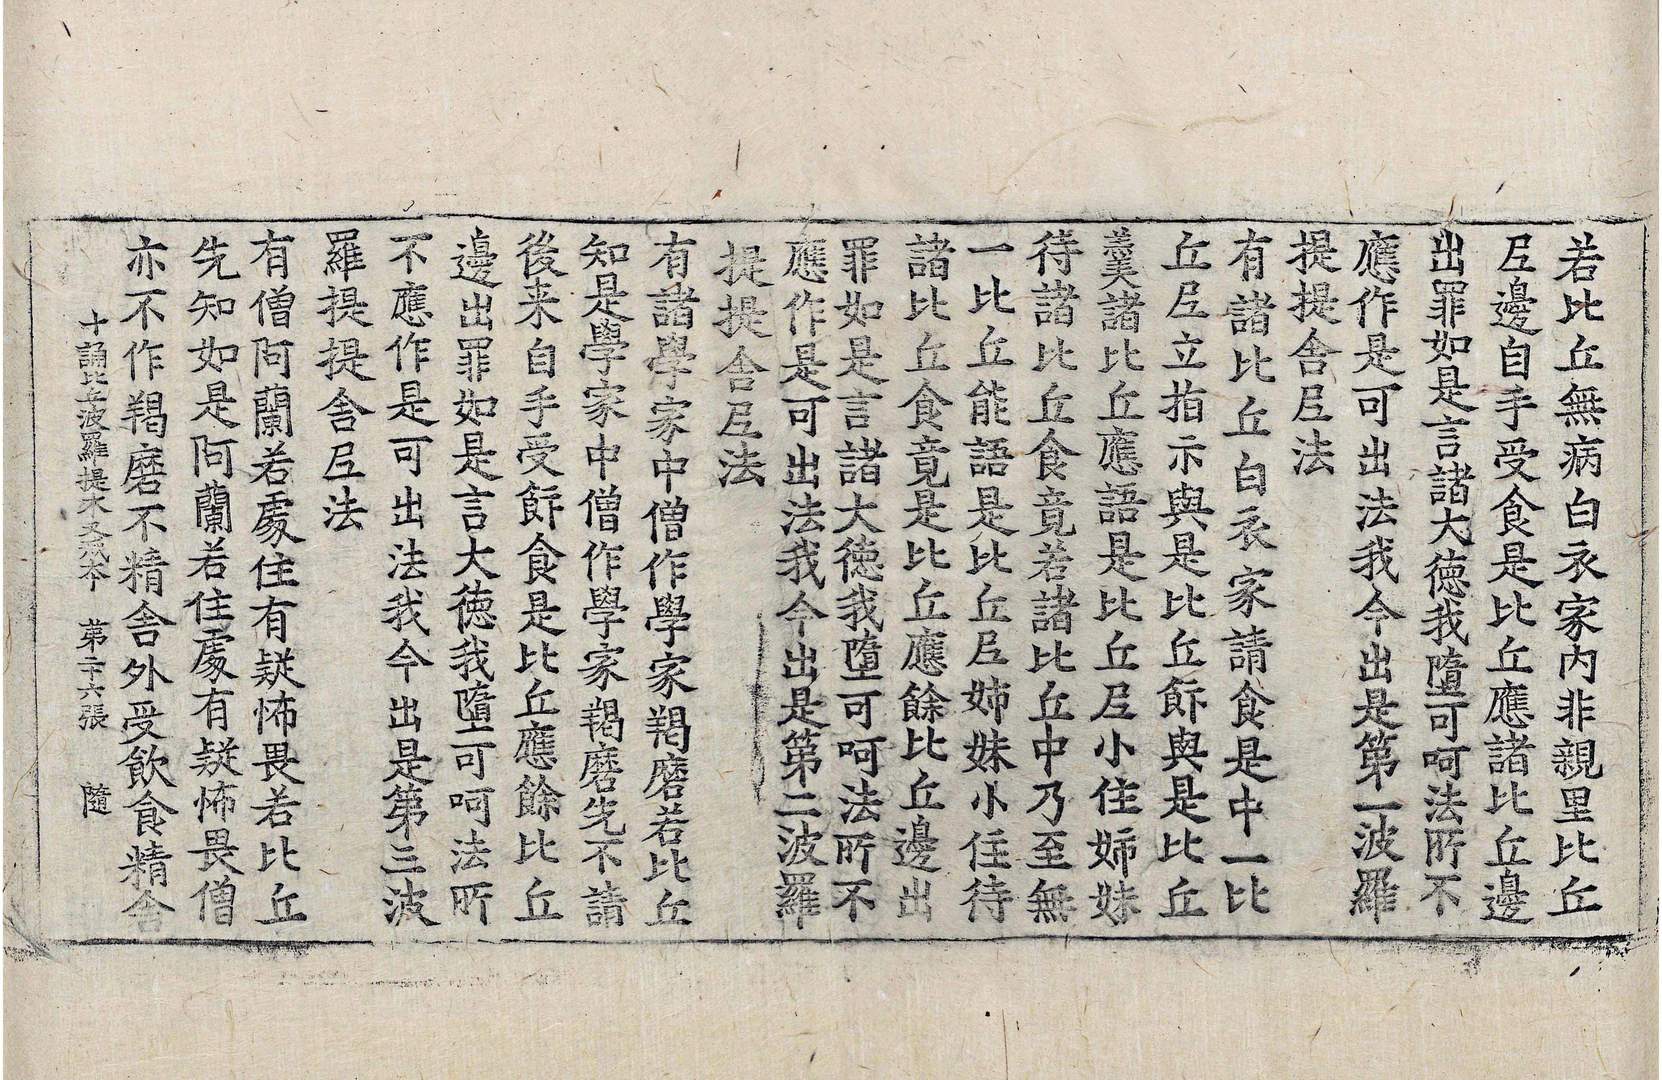 若比丘無病白衣家內非親里比丘
尼邊自手受食是比丘應諸比丘邊
出罪如是言諸大徳我墮可呵法所不
應作是可出法我今出是第一波羅
提提舍尼法
有諸比丘白衣家請食是中一比
丘尼立指示與是比丘飰與是比丘
羹諸比丘應語是比丘尼小住姉妹
待諸比丘食竟若諸比丘中乃至無
一比丘能語是比丘尼姉妹小住待
諸比丘食竟是比丘應餘比丘邊出
罪如是言諸大徳我墮可呵法所不
應作是可出法我今出是第二波羅
提提舍尼法
有諸學家中僧作學家羯磨若比丘
知是學家中僧作學家羯磨先不請
後来自手受飰食是比丘應餘比丘
邊出罪如是言大徳我墮可呵法所
不應作是可出法我今出是第三波
羅提提舍尼法
有僧阿蘭若處住有疑怖畏若比丘
先知如是阿蘭若住處有疑怖畏僧
亦不作羯磨不精舍外受飲食精舍
十誦比丘波羅提木叉戒本 第二十六張 隨